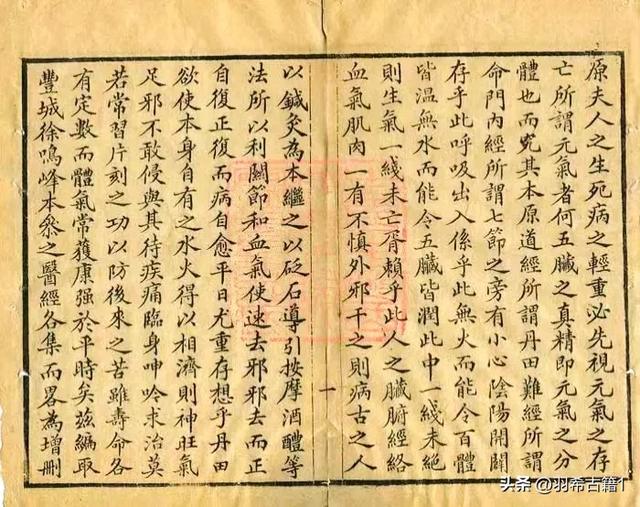 原夫人之生死病之輕重必先視元氣之存
亡所謂元氣者何五臟之真精即元氣之分
體也而究其本原道經所謂丹田難經所謂
命門內經所謂七節之旁有小心陰陽開闢
存乎此呼吸出入係乎此無火而能令百體
皆溫無水而能令五臟皆潤此中一綫未絕
則生氣一綫未亡胥賴乎此人之臟腑經絡
血氣肌肉一有不慎外邪干之則病古之人
一
以鍼灸為本繼之以砭石導引按摩酒醴等
法所以利關節和血氣使速去邪邪去而正
自復正復而病自愈平日尤重存想乎丹田
欲使本身自有之水火得以相濟則神旺氣
足邪不敢侵與其待疾痛臨身呻吟求治莫
若常習片刻之功以防後來之苦雖壽命各
有定數而體氣常獲康强於平時矣茲編取
豐城徐鳴峰本叅之醫經各集而畧為增刪
头条 @羽希古籍1